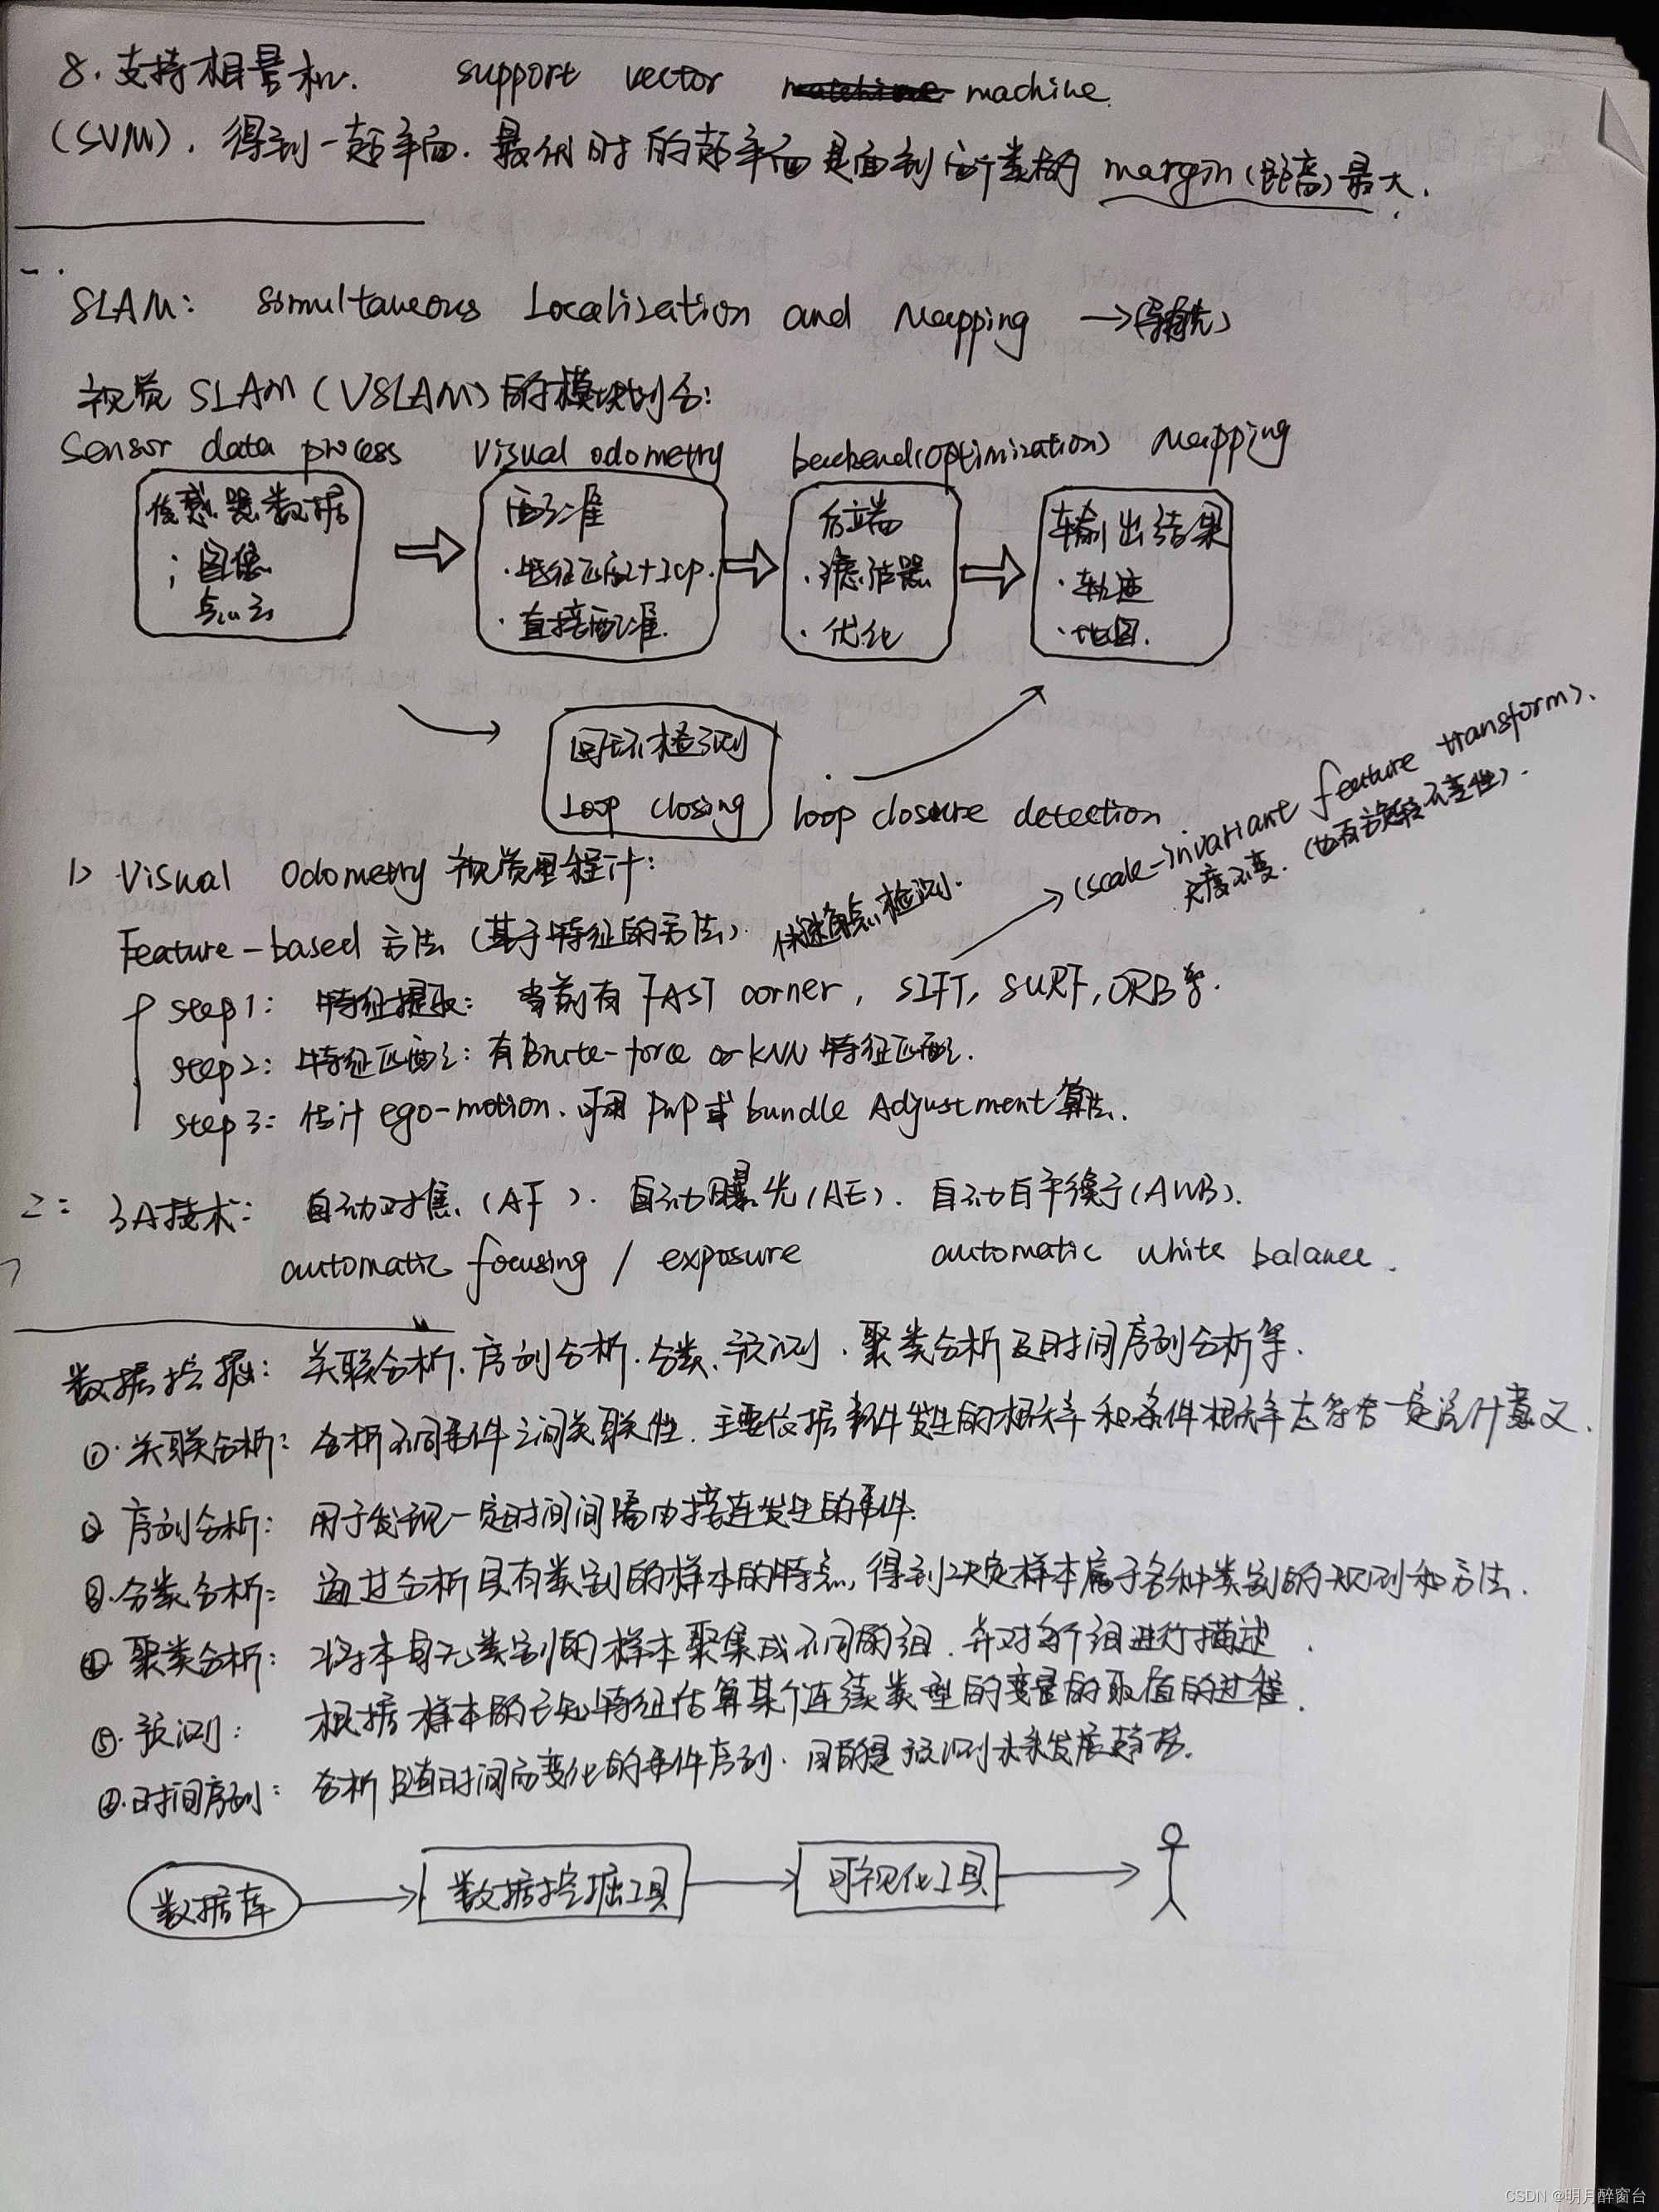 8. 支持相量机. support vector machine.
(SVM), 得到一超平面. 最优时的超平面是面到两个类的 margin (距离) 最大.
一.
SLAM: Simultaneous Localization and Mapping →
视觉 SLAM (VSLAM) 的模块划分:
Sensor data process visual odometry backend (optimization) Mapping
传感器数据
; 图像
点云
配准
· 特征匹配+Icp.
· 直接配准.
后端
· 滤波器
· 优化
输出结果
· 轨迹
· 地图.
回环检测
Loop closing
loop closure detection
1> Visual Odometry 视觉里程计:
(scale-invariant feature transform).
尺度不变. (也有旋转不变性).
Feature-based 方法 (基于特征的方法). 快速角点检测.
step1: 特征提取: 当前有 FAST corner, SIFT, SURF, ORB等.
step2: 特征匹配: 有Brute-force or KNN 特征匹配.
step3: 估计 ego-motion. 可用 PnP 或 bundle Adjustment 算法.
二: 3A技术: 自动对焦 (AF). 自动曝光 (AE). 自动白平衡 (AWB).
automatic focusing / exposure automatic white balance.
数据挖掘: 关联分析. 序列分析. 分类. 预测. 聚类分析及时间序列分析等.
①. 关联分析: 分析不同事件之间关联性. 主要依据事件发生的概率和条件概率是否符合一定统计意义.
② 序列分析: 用于发现一定时间间隔内接连发生的事件.
③. 分类分析: 通过分析具有类别的样本的特点, 得到决定样本属于各种类别的规则和方法.
④ 聚类分析: 将本身无类别的样本聚集成不同的组. 并对每个组进行描述.
⑤. 预测: 根据样本的已知特征估算某个连续类型的变量的取值的过程.
⑥. 时间序列: 分析随时间而变化的事件序列. 目的是预测未来发展趋势.
数据库
数据挖掘工具
可视化工具
CSDN @明月醉窗台